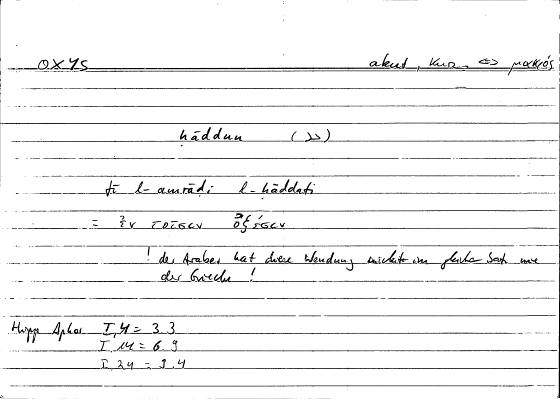 OXYS akut, kurz <=> μακρός
ḥāddun (حد)
fī l-amrāḍi l-ḥāddati
= ἐν τοῖσιν ὀξέσιν
! der Araber hat diese Wendung nicht im gleichen Satz wie
der Grieche !
Hipp Aphor I, 4 = 3.3
I, 14 = 6.9
I, 24 = 9.4